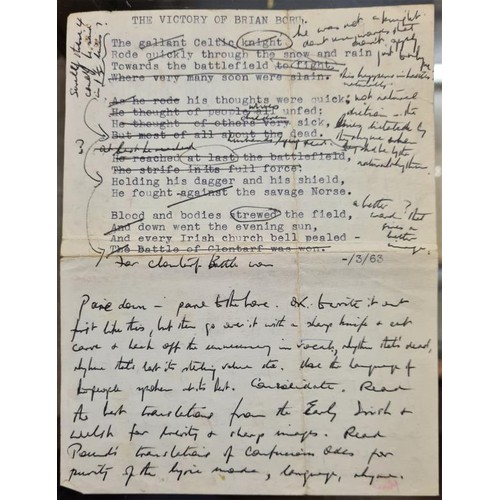 THE VICTORY OF BRIAN BORU.
The gallant Celtic knight
Rode quickly through the snow and rain
Towards the battlefield to fight,
Where very many soon were slain.
he was not a knight.
Surely there 4
could be used
in 15 lines?
this happens in battles
naturally.
As he rode his thoughts were quick;
He thought of people unfed;
He thought of others very sick,
But most of all about the dead.
not natural
diction - the
being dictated by
rhyme
natural rhythm.
3
at first he reached
He reached at last the battlefield,
The strife in its full force:
Holding his dagger and his shield,
He fought against the savage Norse.
Blood and bodies strewed the field,
And down went the evening sun,
And every Irish church bell pealed -
The Battle of Clontarf was won.
a better ?
word that
gives a
better
image.
For Clontarf Battle won
-/3/63
Pare down - pare to the bone. O.K. to write it out
first like this, but then go over it with a sharp knife & cut
carve & hack off the unnecessary in vocab, rhythm that's dead,
rhyme that's lost its sterling value etc. Use the language of
the people spoken at its best. Consolidate. Read
the best translations from the Early Irish &
Welsh for brevity & sharp images. Read
Pound's translations of Confucian Odes for
purity of the lyric mode, language, rhyme.